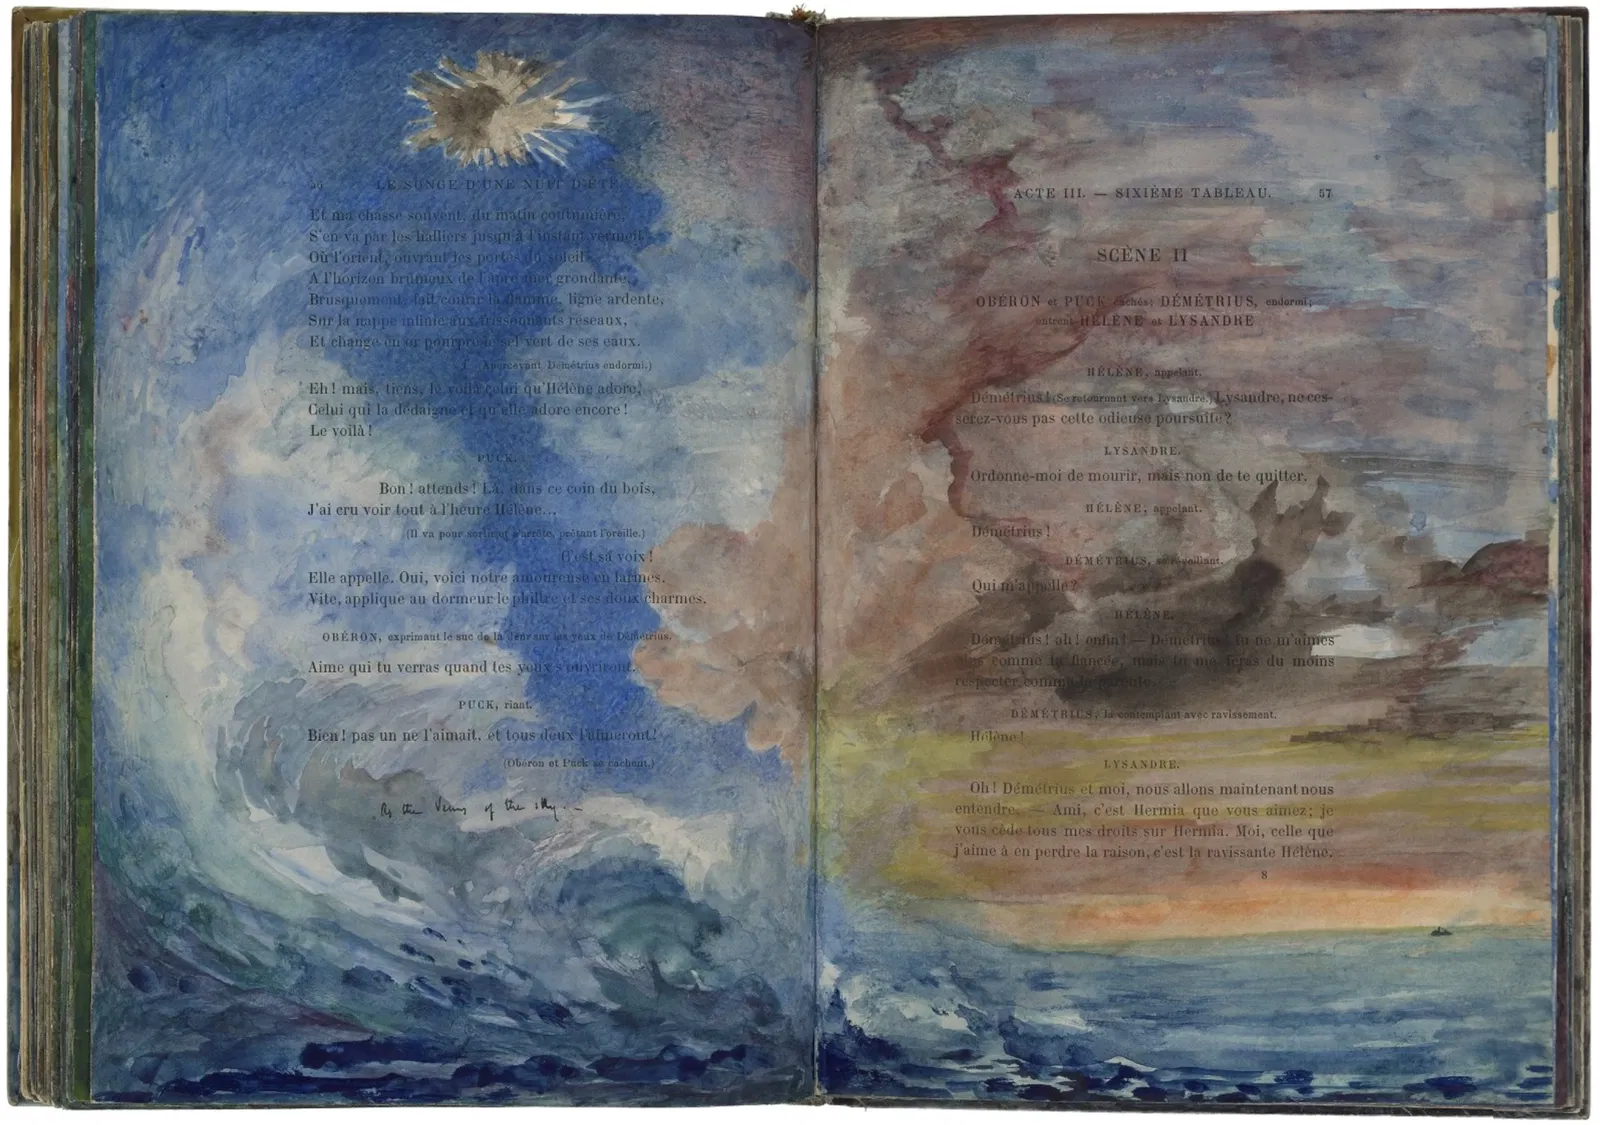 56 LE SONGE D'UNE NUIT D'ÉTÉ.
Et ma chasse souvent, du matin coutumière,
S'en va par les halliers jusqu'à l'instant vermeil
Où l'orient, ouvrant les portes du soleil,
A l'horizon brumeux de l'âpre mer grondante,
Brusquement fait courir la flamme, ligne ardente,
Sur la nappe infinie aux frissonnants réseaux,
Et change en or pourpré le sel vert de ses eaux.
(Apercevant Démétrius endormi.)
Eh! mais, tiens, le voilà celui qu'Hélène adore,
Celui qui la dédaigne et qu'elle adore encore!
Le voilà!
PUCK.
Bon! attends! Là, dans ce coin du bois,
J'ai cru voir tout à l'heure Hélène...
(Il va pour sortir et s'arrête, prêtant l'oreille.)
C'est sa voix!
Elle appelle. Oui, voici notre amoureuse en larmes.
Vite, applique au dormeur le philtre et ses doux charmes.
OBÉRON, exprimant le suc de la fleur sur les yeux de Démétrius.
Aime qui tu verras quand tes yeux s'ouvriront.
PUCK, riant.
Bien! pas un ne l'aimait, et tous deux l'aimeront!
(Obéron et Puck se cachent.)
As the Venus of the sky. —
ACTE III. — SIXIÈME TABLEAU. 57
SCÈNE II
OBÉRON et PUCK cachés; DÉMÉTRIUS, endormi;
entrent HÉLÈNE et LYSANDRE
HÉLÈNE, appelant.
Démétrius! (Se retournant vers Lysandre.) Lysandre, ne ces-
serez-vous pas cette odieuse poursuite?
LYSANDRE.
Ordonne-moi de mourir, mais non de te quitter.
HÉLÈNE, appelant.
Démétrius!
DÉMÉTRIUS, se réveillant.
Qui m'appelle?
HÉLÈNE.
Démétrius! ah! enfin! — Démétrius! tu ne m'aimes
pas comme ta fiancée, mais tu me feras du moins
respecter comme ta parente...
DÉMÉTRIUS, la contemplant avec ravissement.
Hélène!
LYSANDRE.
Oh! Démétrius et moi, nous allons maintenant nous
entendre. — Ami, c'est Hermia que vous aimez; je
vous cède tous mes droits sur Hermia. Moi, celle que
j'aime à en perdre la raison, c'est la ravissante Hélène.
8